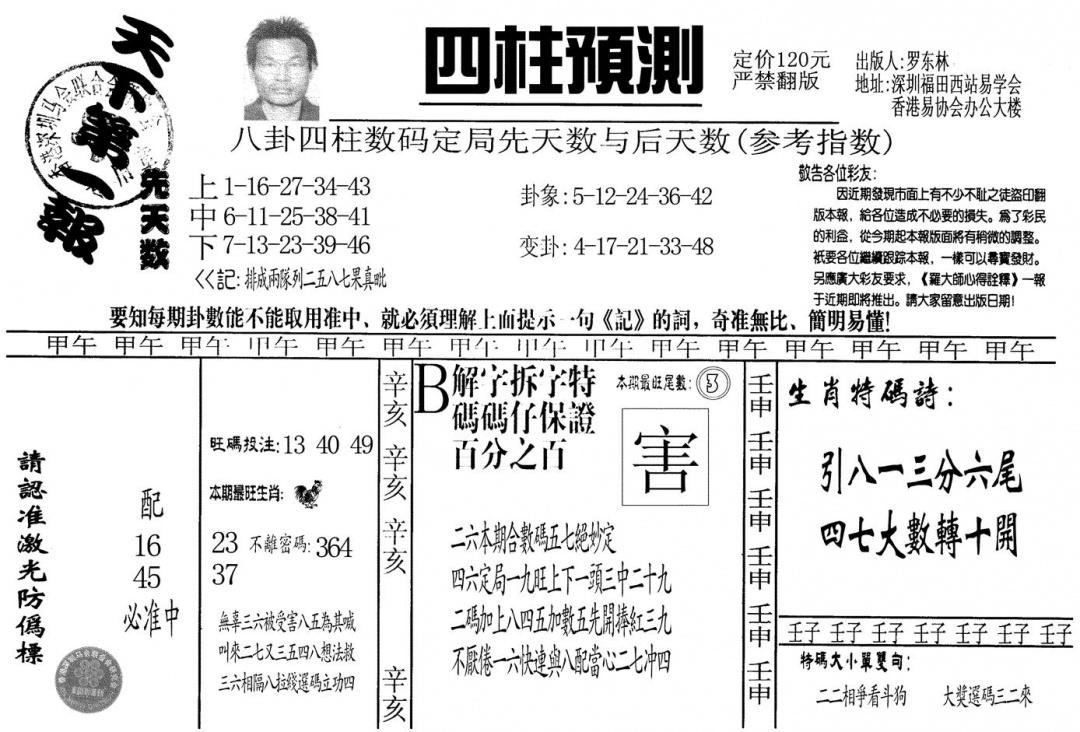 天下第一報
先天数
四柱預測
定价120元
严禁翻版
出版人:罗东林
地址:深圳福田西站易学会
香港易协会办公大楼
八卦四柱数码定局先天数与后天数(参考指数)
上 1-16-27-34-43
中 6-11-25-38-41
下 7-13-23-39-46
<<記: 排成兩隊列二五八七果真毗
卦象:5-12-24-36-42
变卦:4-17-21-33-48
敬告各位彩友:
因近期發現市面上有不少不耻之徒盜印翻
版本報，給各位造成不必要的損失。爲了彩民
的利益，從今期起本報版面將有稍微的調整。
衹要各位繼續跟踪本報，一樣可以尋寶發財。
另應廣大彩友要求，《羅大師心得詮釋》一報
于近期即將推出。請大家留意出版日期!
要知每期卦數能不能取用准中、就必須理解上面提示一句《記》的詞，奇准無比、簡明易懂!
甲午 甲午 甲午 甲午 甲午 甲午 甲午 甲午 甲午 甲午 甲午 甲午 甲午 甲午 甲午
請認准激光防僞標
配
16
45
必准中
旺碼投注:13 40 49
本期最旺生肖:
23 不離密碼:364
37
無辜三六被受害八五為其喊
叫來二七又三五四八想法救
三六相隔八拉綫選碼立功四
辛亥
辛亥
辛亥
辛亥
B 解字拆字特
碼碼仔保證
百分之百
本期最旺尾數: 3
害
二六本期合數碼五七絕妙定
四六定局一九旺上下一頭三中二十九
二碼加上八四五加數五先開捧紅三九
不厭倦一六快連與八配當心二七冲四
壬申
壬申
壬申
壬申
壬申
壬申
生肖特碼詩:
引八一三分六尾
四七大數轉十開
壬子 壬子 壬子 壬子 壬子 壬子 壬子
特碼大小單雙句:
二二相爭看斗狗 大獎選碼三二來